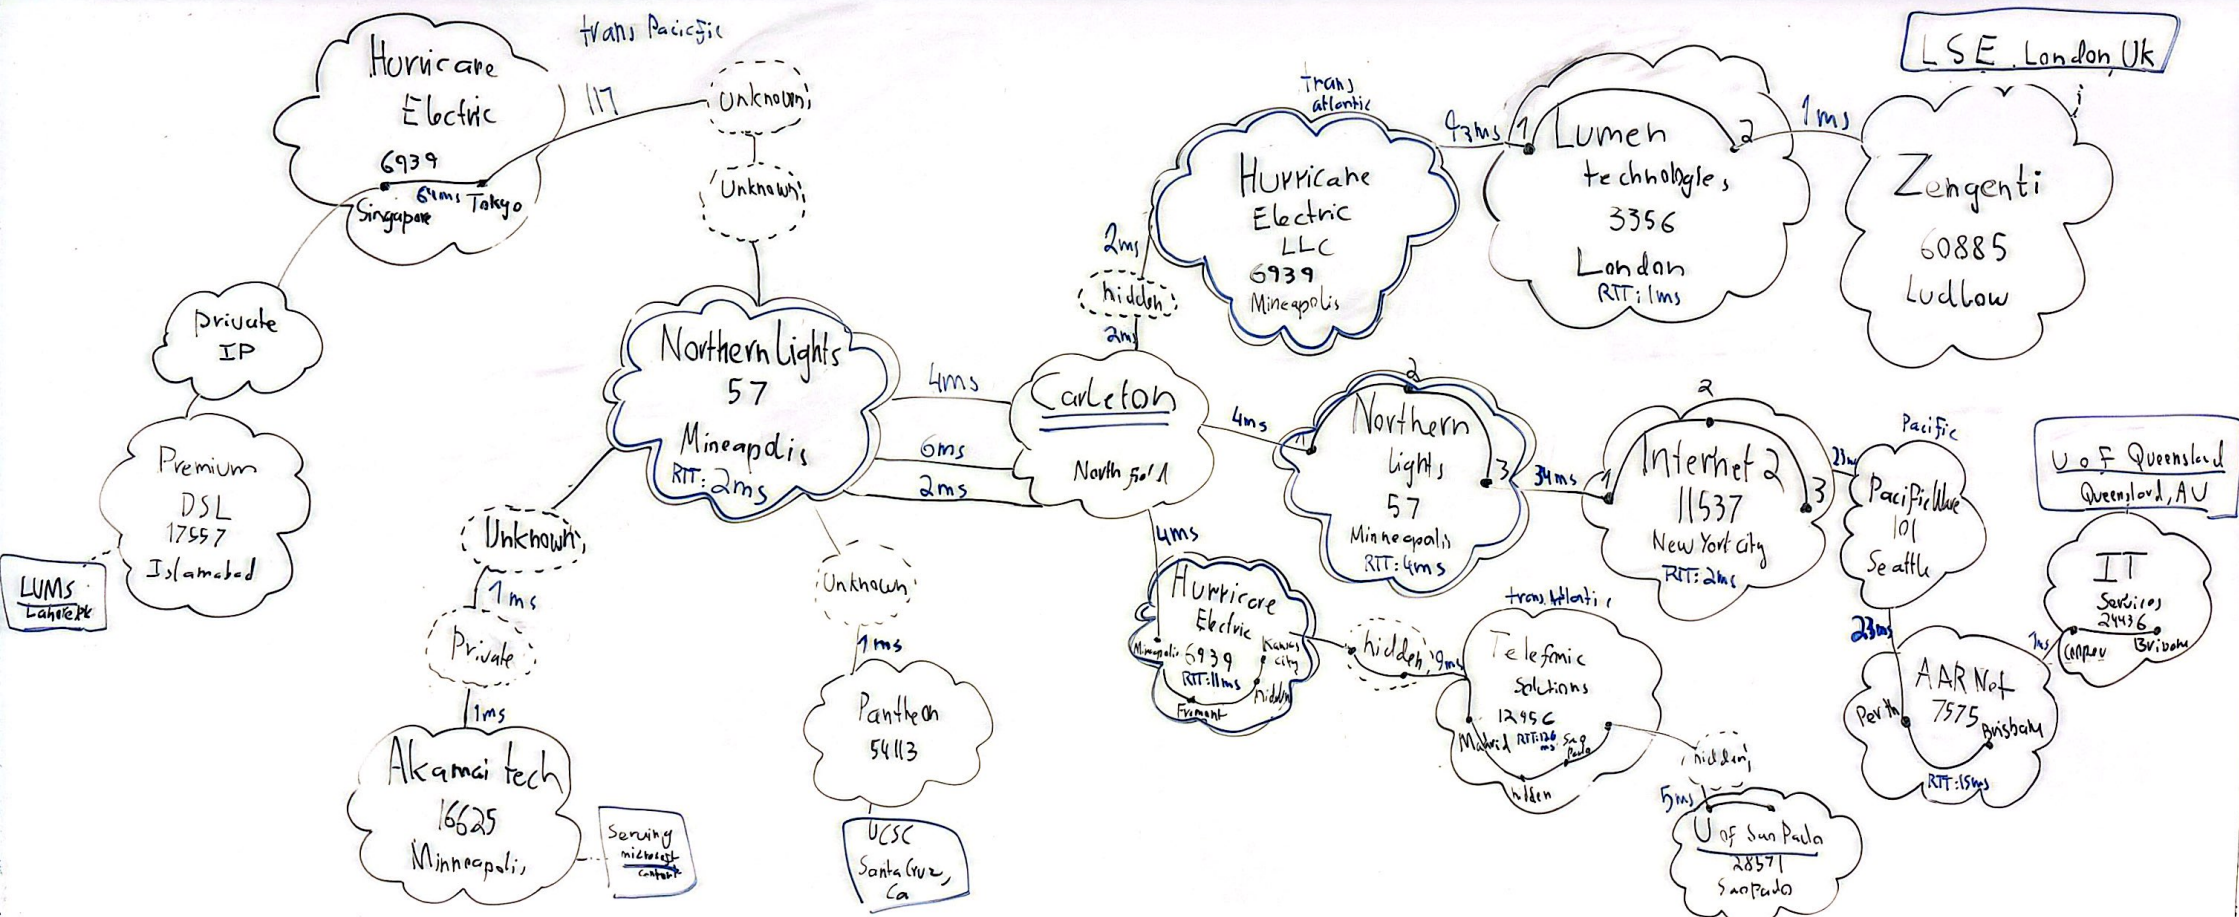 trans Pacicfic
Hurricare
Electric
6939
64ms
Singapore
Tokyo
117
Unknown
Unknown
private
IP
Premium
DSL
17557
Islamabad
LUMs
Lahore Pk
Northern Lights
57
Mineapolis
RTT: 2ms
4ms
6ms
2ms
Unknown
1ms
Private
1ms
Akamai tech
16625
Minneapolis
Serving
microsoft
content
Unknown
1ms
Pantheon
54113
UCSC
Santa Cruz,
Ca
Carleton
2ms
hidden
2ms
trans
atlantic
Hurricane
Electric
LLC
6939
Mineapolis
1
2
Lumen
technologies
3356
London
RTT: 1ms
1ms
LSE. London, Uk
Zengenti
60885
Ludlow
4ms
1
2
3
Northern
lights
57
Minneapolis
RTT: 4ms
34ms
1
2
3
Internet 2
11537
New York city
RTT: 2ms
23ms
Pacific
Pacific Wave
101
Seattle
23ms
AAR Net
7575
Perth
Brisbane
RTT: 15ms
1ms
IT
Services
24436
U of Queensland
Queensland, AU
4ms
Hurricare
Electric
6939
Kansas
city
Mineapolis
RTT: 11ms
Fremont
hidden
hidden
9ms
trans. Atlantic
Solutions
12956
Madrid
RTT: 126
ms
Sao
Paulo
hidden
hidden
5ms
U of Sao Paulo
28571
Sao Paulo